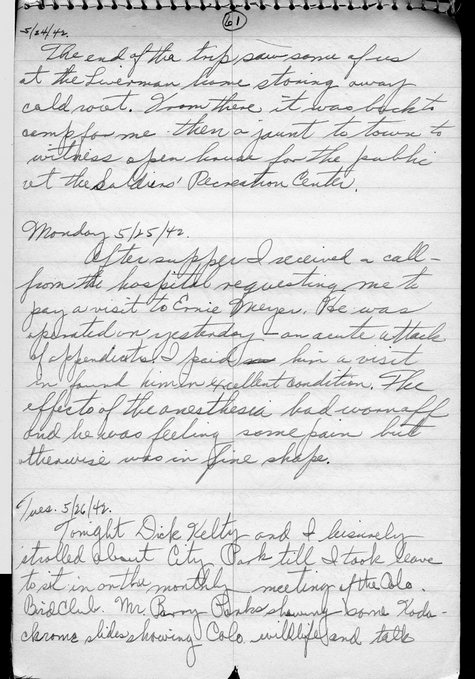 61
5/24/42.
The end of the trip saw some of us
at the home storing away
cold roast. From there it was back to
camp for me - then a jaunt to town to
witness open house for the public
at the Soldiers' Recreation Center.
Monday 5/25/42.
After supper I received a call -
from the hospital requesting me to
pay a visit to Ernie Meyer. He was
operated on yesterday - an acute attack
of appendicitis. I paid him a visit
in found him in excellent condition. The
effects of the anesthesia had worn off
and he was feeling some pain but
otherwise was in fine shape.
Tues. 5/26/42.
Tonight Dick Kelty and I leisurely
strolled about City Park till I took leave
to sit in on the monthly meeting of the Colo.
Bird Club. Mr. Parks showing some Koda-
chrome slides showing Colo. wildlife and talk